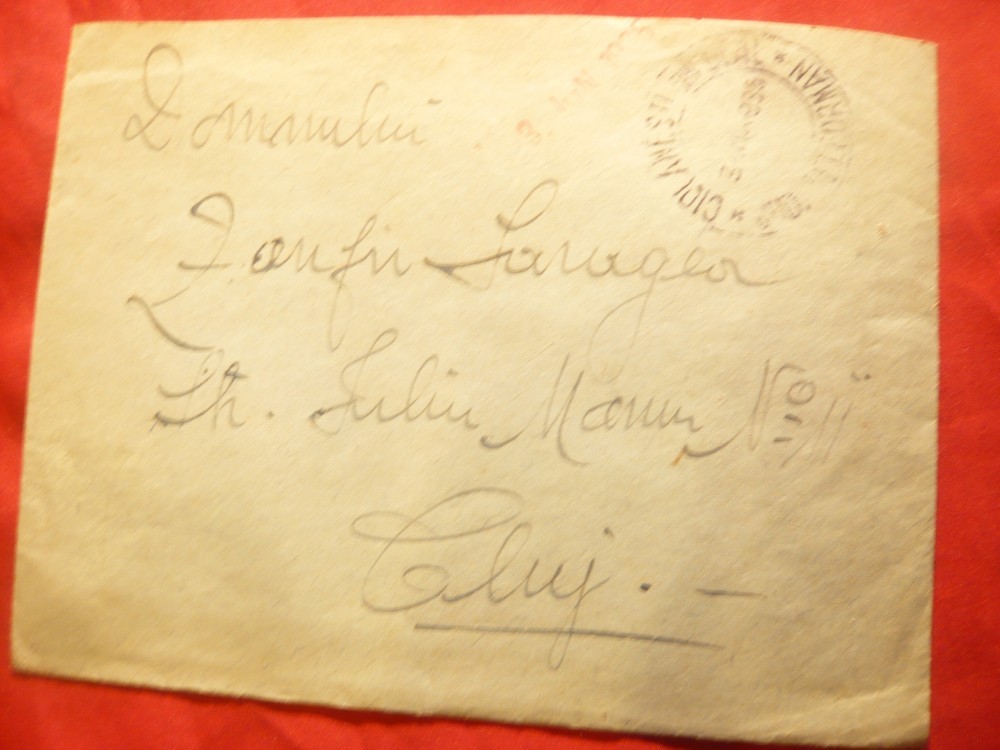 Domnului
Zanfir Saragea
Str. Iuliu Maniu No. 11
Cluj. —
* CIOLANESTII DIN
TELEORMAN *